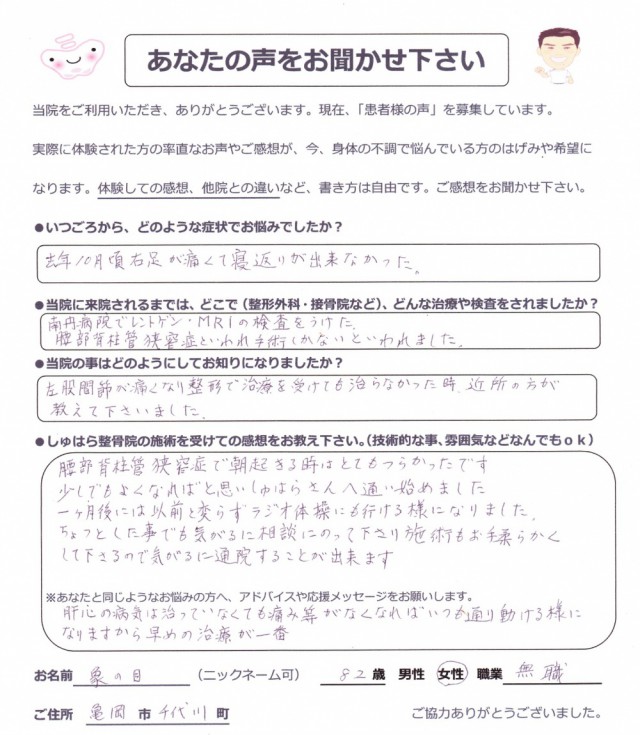 あなたの声をお聞かせ下さい
当院をご利用いただき、ありがとうございます。現在、「患者様の声」を募集しています。
実際に体験された方の率直なお声やご感想が、今、身体の不調で悩んでいる方のはげみや希望に
なります。体験しての感想、他院との違いなど、書き方は自由です。ご感想をお聞かせ下さい。
●いつごろから、どのような症状でお悩みでしたか？
去年10月頃右足が痛くて寝返りが出来なかった。
●当院に来院されるまでは、どこで（整形外科・接骨院など）、どんな治療や検査をされましたか？
南丹病院でレントゲン・MRIの検査をうけた。
腰部脊柱管狭窄症といわれ手術しかないといわれました。
●当院の事はどのようにしてお知りになりましたか？
左股間節が痛くなり整形で治療を受けても治らなかった時、近所の方が
教えて下さいました。
●しゅはら整骨院の施術を受けての感想をお教え下さい。（技術的な事、雰囲気などなんでもｏｋ）
腰部脊柱管狭窄症で朝起きる時はとてもつらかったです
少しでもよくなればと思いしゅはらさんへ通い始めました
一ヶ月後には以前と変らずラジオ体操にも行ける様になりました。
ちょっとした事でも気がるに相談にのって下さり施術もお手柔らかく
して下さるので気がるに通院することが出来ます
※あなたと同じようなお悩みの方へ、アドバイスや応援メッセージをお願いします。
肝心の病気は治っていなくても痛み等がなくなればいつも通り動ける様に
なりますから早めの治療が一番
お名前 象の目 （ニックネーム可） 82 歳 男性 女性 職業 無職
ご住所 亀岡 市 千代川 町 ご協力ありがとうございました。